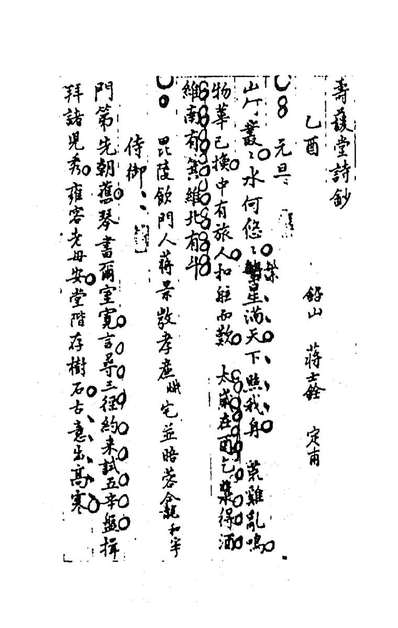 壽萱堂詩鈔
鉛山 蔣士銓 定甫
乙酉
元旦
山何叢叢水何悠悠 星滿天下照我身 荒雞亂鳴
物華已換中有旅人扣缶而歌 太歲在酉乞漿得酒
維南有箕維北有斗
毘陵飲門人蔣 敬孝廉 宅並晤蓉龕 和宇
侍御
門第先朝舊琴書爾室寬言尋三徑約來試五辛盤揖
拜諸兒秀雍容老母安堂階存樹石古意出高寒